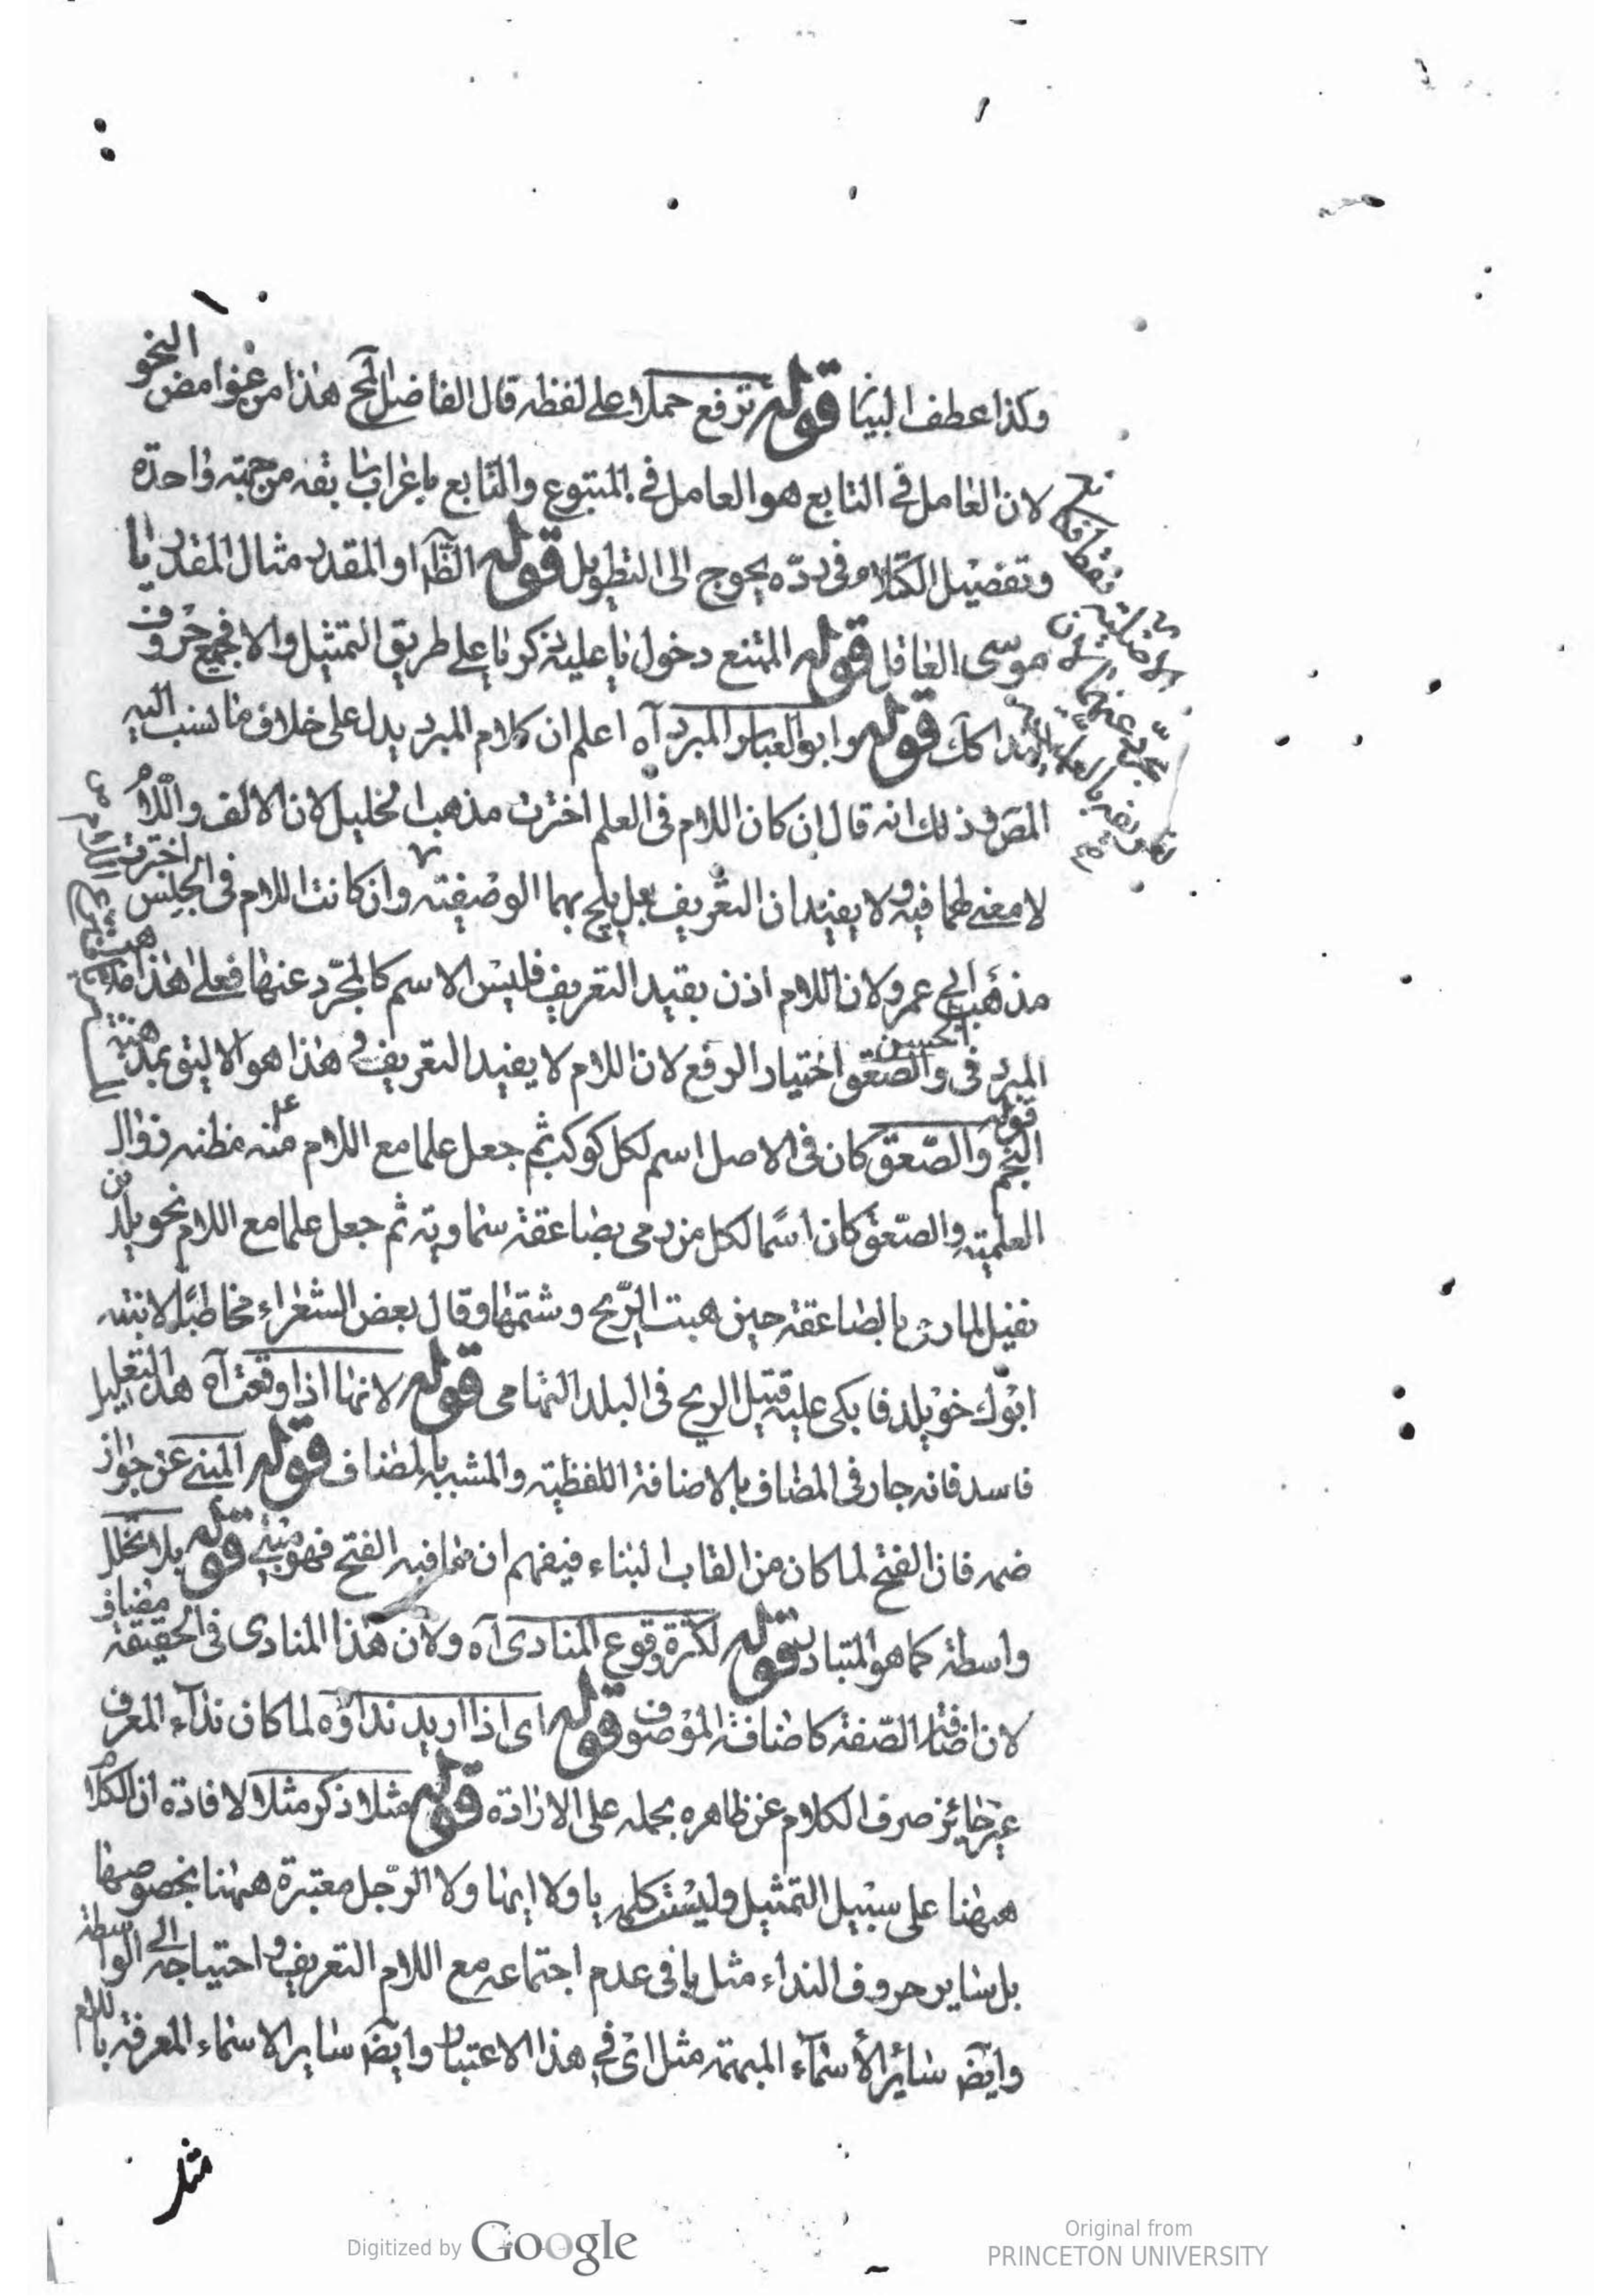 وكذا عطف البيان قوله ترفع حملا على لفظه قال الفاضل المح هذا من غوامض النحو
لان العامل في التابع هو العامل في المتبوع والتابع باعراب من جهة واحدة
وتفصيل الكلام وفي رده يحوج الى التطويل قوله الظاهر او المقدر مثال المقدر يا
موسى العاقل قوله الممتنع دخول يا عليه ذكر يا على طريق التمثيل والا فجميع حروف
النداء كك قوله وابو العباس المبرد آه اعلم ان كلام المبرد يدل على خلاف ما نسب اليه
المص وذلك انه قال ان كان اللام في العلم اخترت مذهب الخليل لان الالف واللام
لا معنى لهما فيه ولا يفيدان التعريف بل يلمح بهما الوصفية وان كانت اللام في الجنس اخترت
مذهب ابي عمرو لان اللام اذن يفيد التعريف فليس الاسم كالمجرد عنها فعلى هذا مذهب
المبرد في الحسن والصعق اختيار الرفع لان اللام لا يفيد التعريف في هذا هو الاليق بمذهبه
قوله النجم والصعق كان في الاصل اسم لكل كوكب ثم جعل علما مع اللام منه مظنه زوال
العلمية والصعق كان اسما لكل من رمى بصاعقة سماوية ثم جعل علما مع اللام نحويلد بن
نفيل لما رمى بالصاعقة حين هبت الريح وشتمها وقال بعض الشعراء مخاطبا لابنته
ابوك خويلد فابكى عليه قتيل الريح في البلد التهامى قوله لانها اذا وقعت آه هذا التعليل
فاسد فانه جار في المضاف بالاضافة اللفظية والمشبه بالمضاف قوله المبنى عن جواز
ضمه فان الفتح لما كان من القاب البناء فيفهم ان ما فيه الفتح فهو مبنى قوله بلا تخلل
واسطة كما هو المتبادر قوله لكثرة وقوع المنادى آه ولان هذا المنادى في الحقيقة مضاف
لان اضافة الصفة كاضافة الموصوف قوله اى اذا اريد نداؤه لما كان نداء المعرف
غير جائز صرف الكلام عن ظاهره بحمله على الارادة قوله مثلا ذكر مثلا لافادة ان الكلام
ههنا على سبيل التمثيل وليست كلمه يا ولا ايها ولا الرجل معتبرة ههنا بخصوصها
بل ساير حروف النداء مثل يا في عدم اجتماعه مع اللام التعريف و احتياجه الى الواسطة
وايض سائر الأسماء المبهمة مثل اى في هذا الاعتبار وايض ساير الاسماء المعرفة باللام
مثل
Digitized by Google
Original from
PRINCETON UNIVERSITY